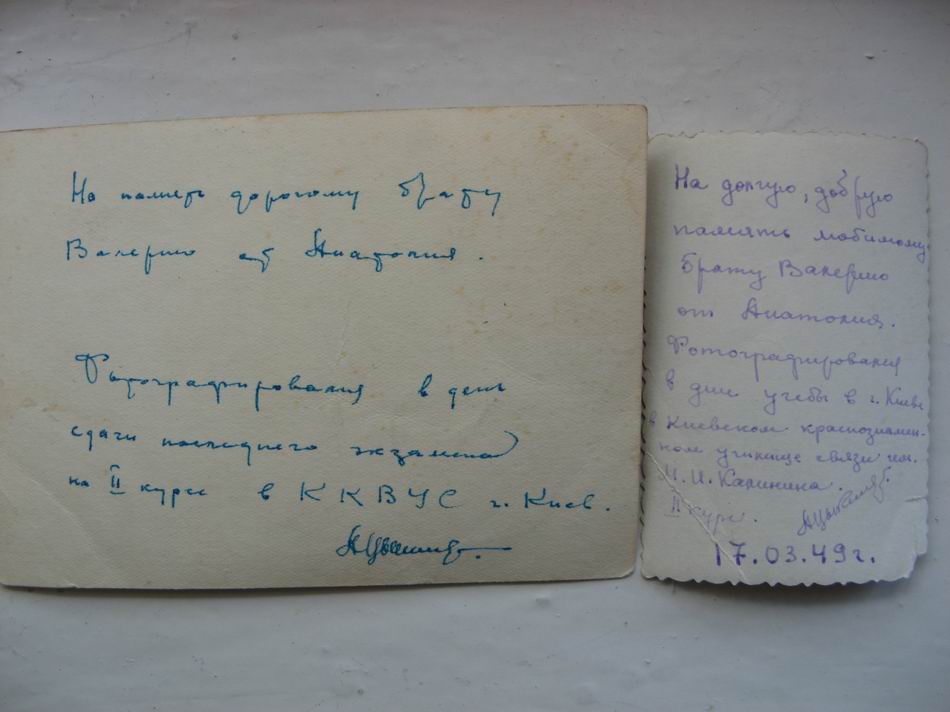 На память дорогому брату
Валерию от Анатолия.
Фотографировался в день
сдачи последнего экзамена
на II курсе в ККВУС г. Киев.
На долгую, добрую
память любимому
брату Валерию
от Анатолия.
Фотографировался
в дни учебы в г. Киеве
в Киевском краснознамен-
ном училище связи им.
М.И. Калинина.
II курс.
17.03.49г.